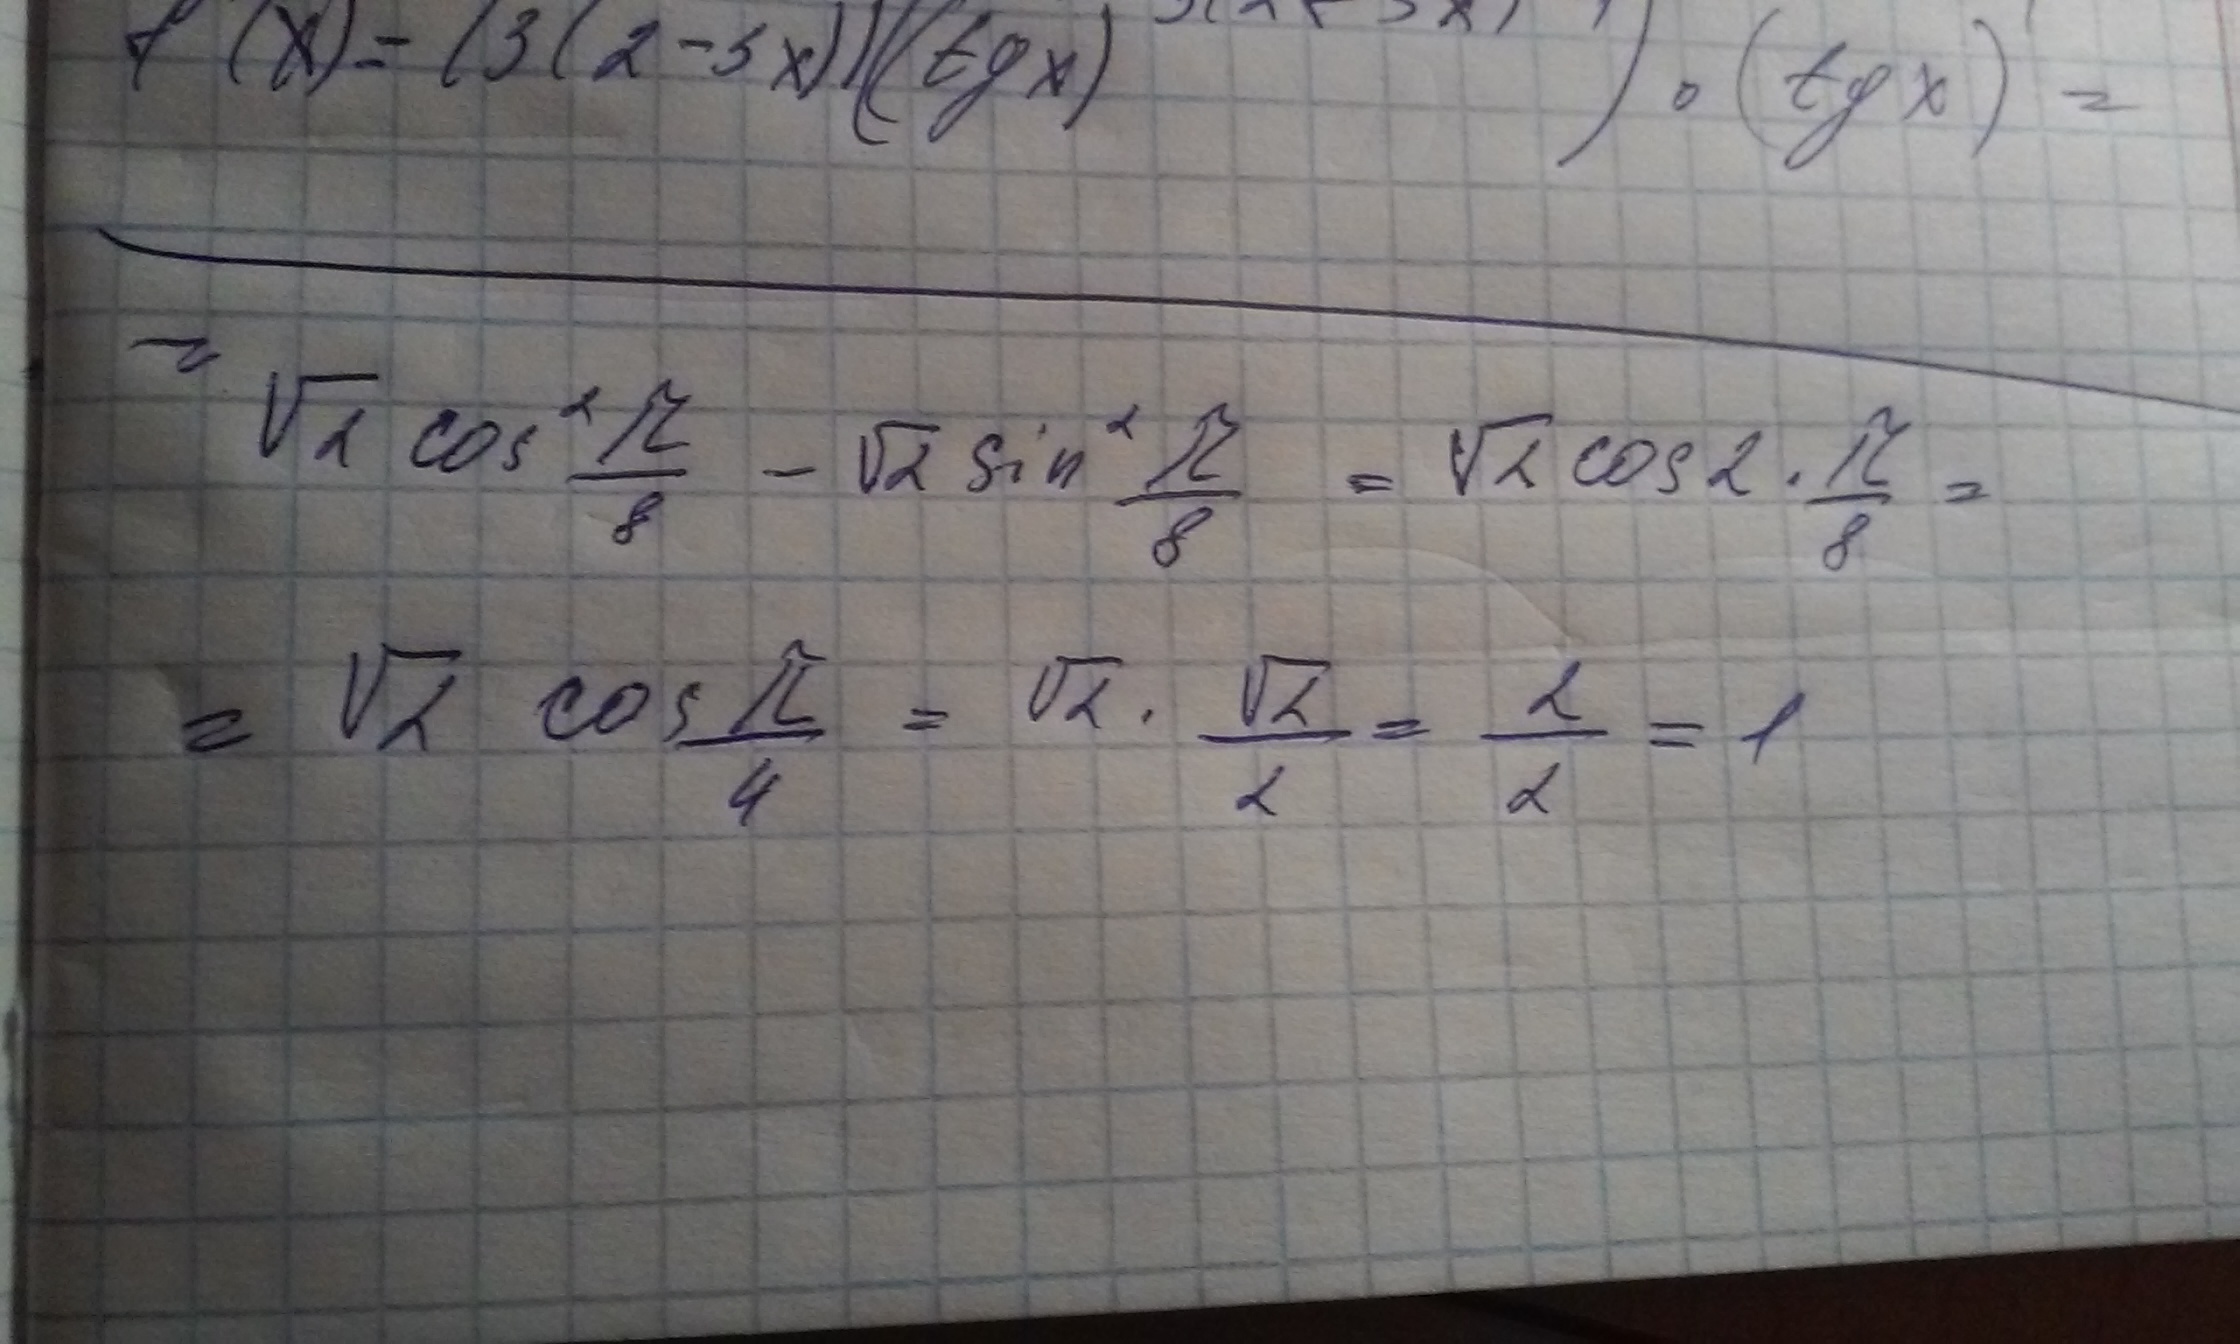 f'(x) = (3(2-5x))((tg x)) · (tg x)' =
= √2 cos² π/8 - √2 sin² π/8 = √2 cos 2 · π/8 =
= √2 cos π/4 = √2 · √2/2 = 2/2 = 1